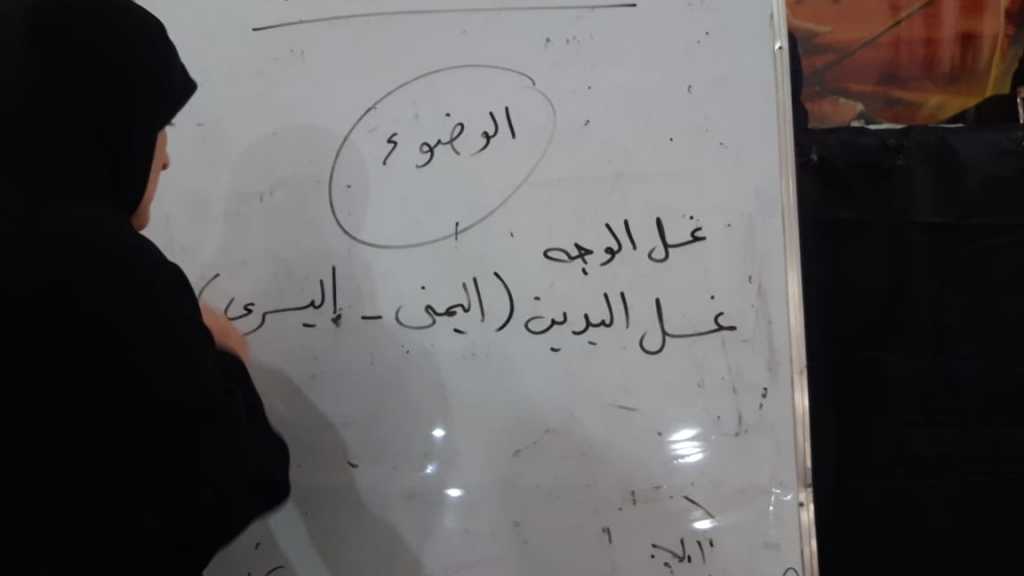 الوضوء
غسل الوجه
غسل اليدين (اليمنى - إليسرى)